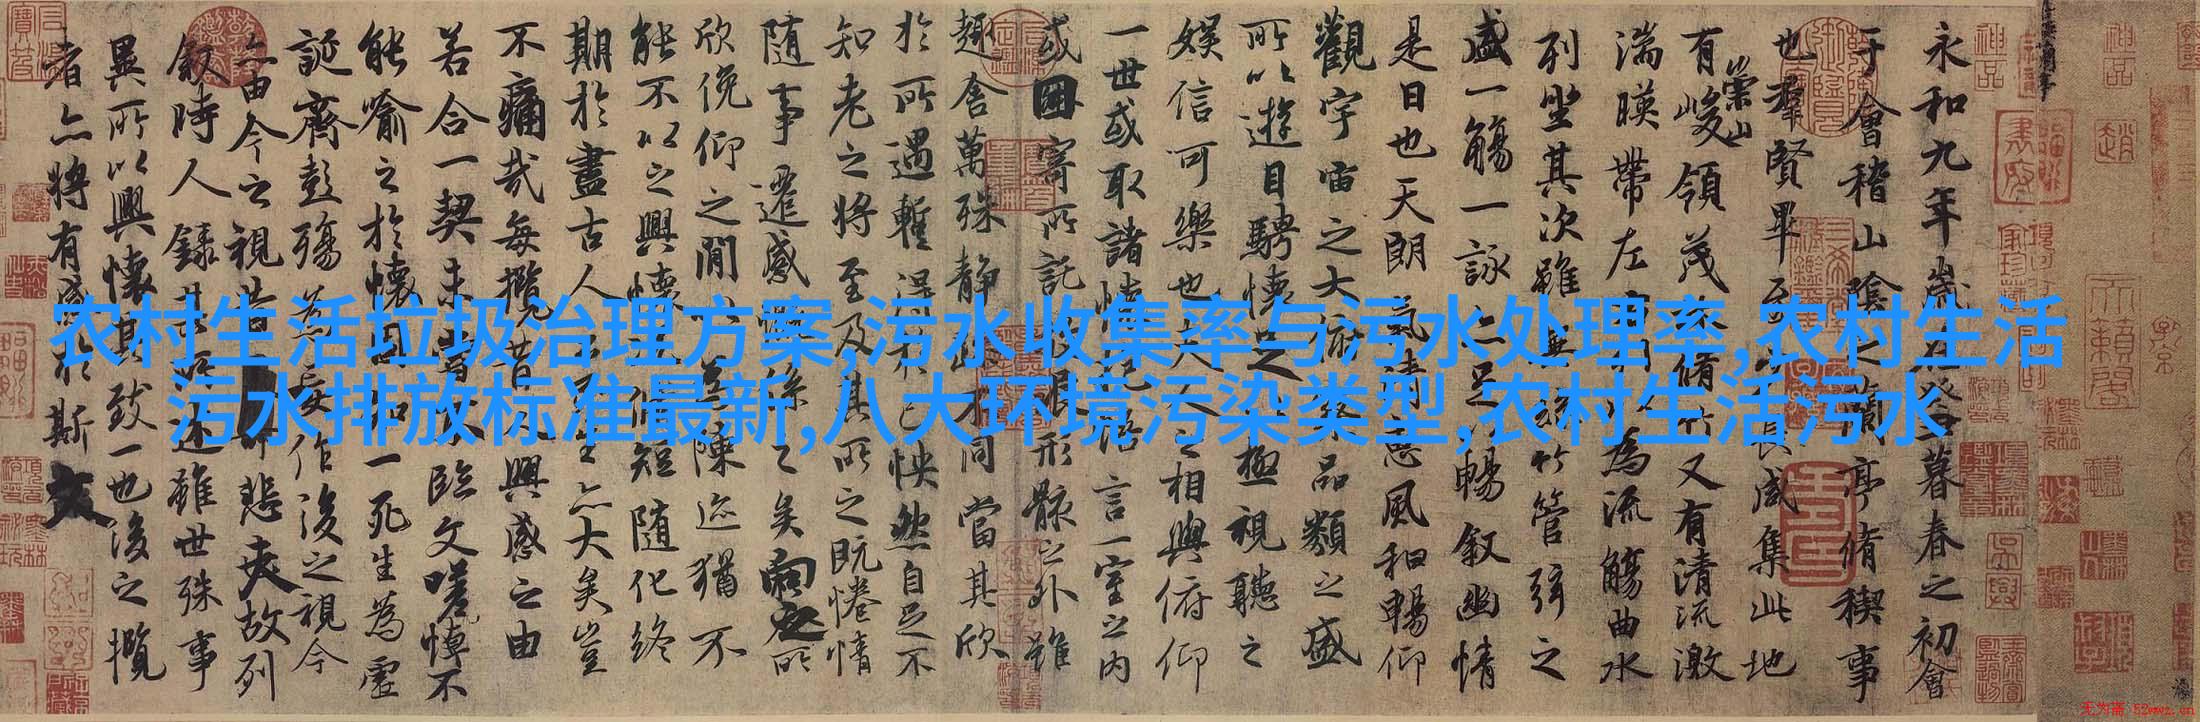 农村生活垃圾治理方案,污水收集率与污水处理率,农村生活
污水排放标准最新,八大环境污染类型,农村生活污水
永和九年歲在癸丑暮春之初會
于會稽山陰之蘭亭脩稧事
也羣賢畢至少長咸集此地
有崇山峻領茂林脩竹又有清流激
湍暎帶左右引以為流觴曲水
列坐其次雖無絲竹管弦之
盛一觴一詠亦足以暢敘幽情
是日也天朗氣清惠風和暢仰
觀宇宙之大俯察品類之盛
所以遊目騁懷足以極視聽之
娛信可樂也夫人之相與俯仰
一世或取諸懷抱悟言一室之內
或因寄所託放浪形骸之外雖
趣舍萬殊靜躁不同當其欣
於所遇暫得於己怏然自足不
知老之將至及其所之既惓情
隨事遷感慨係之矣向之所
欣俛仰之閒以為陳迹猶不
能不以之興懷況脩短隨化終
期於盡古人云死生亦大矣豈
不痛哉每攬昔人興感之由
若合一契未嘗不臨文嗟悼不
能喻之於懷固知一死生為虛
誕齊彭殤為妄作後之視今
亦由今之視昔悲夫故列
敘時人錄其所述雖世殊事
異所以興懷其致一也後之攬
者亦將有感於斯文